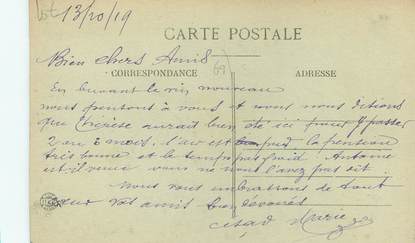 13/10/19
CARTE POSTALE
Bien chers Amis
69
CORRESPONDANCE
ADRESSE
En buvant le vin nouveau
nous pensons à vous et nous nous disions
que Thérèse aurait bien été ici pour y passer
2 ou 3 mois. l'air est la pension
très bonne et le temps pas froid. Antoine
est il venu vous ne nous l'avez pas dit.
Nous vous embrassons de tout
cœur vos amis bien dévoués
Marie